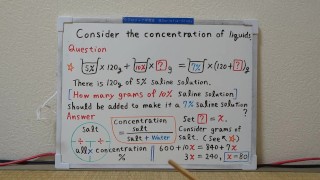 Consider the concentration of liquids
Question
☆ 5% × 120g + 10% × ?g = 7% × (120+?)g
There is 120g of 5% saline solution.
[How many grams of 10% saline solution]
should be added to make it a 7% saline solution?
Answer
Salt
Concentration = Salt / Salt + Water
Set ? = x.
Consider grams of
salt. (See ☆)
% concentration
600 + 10x = 840 + 7x
3x = 240, x = 80